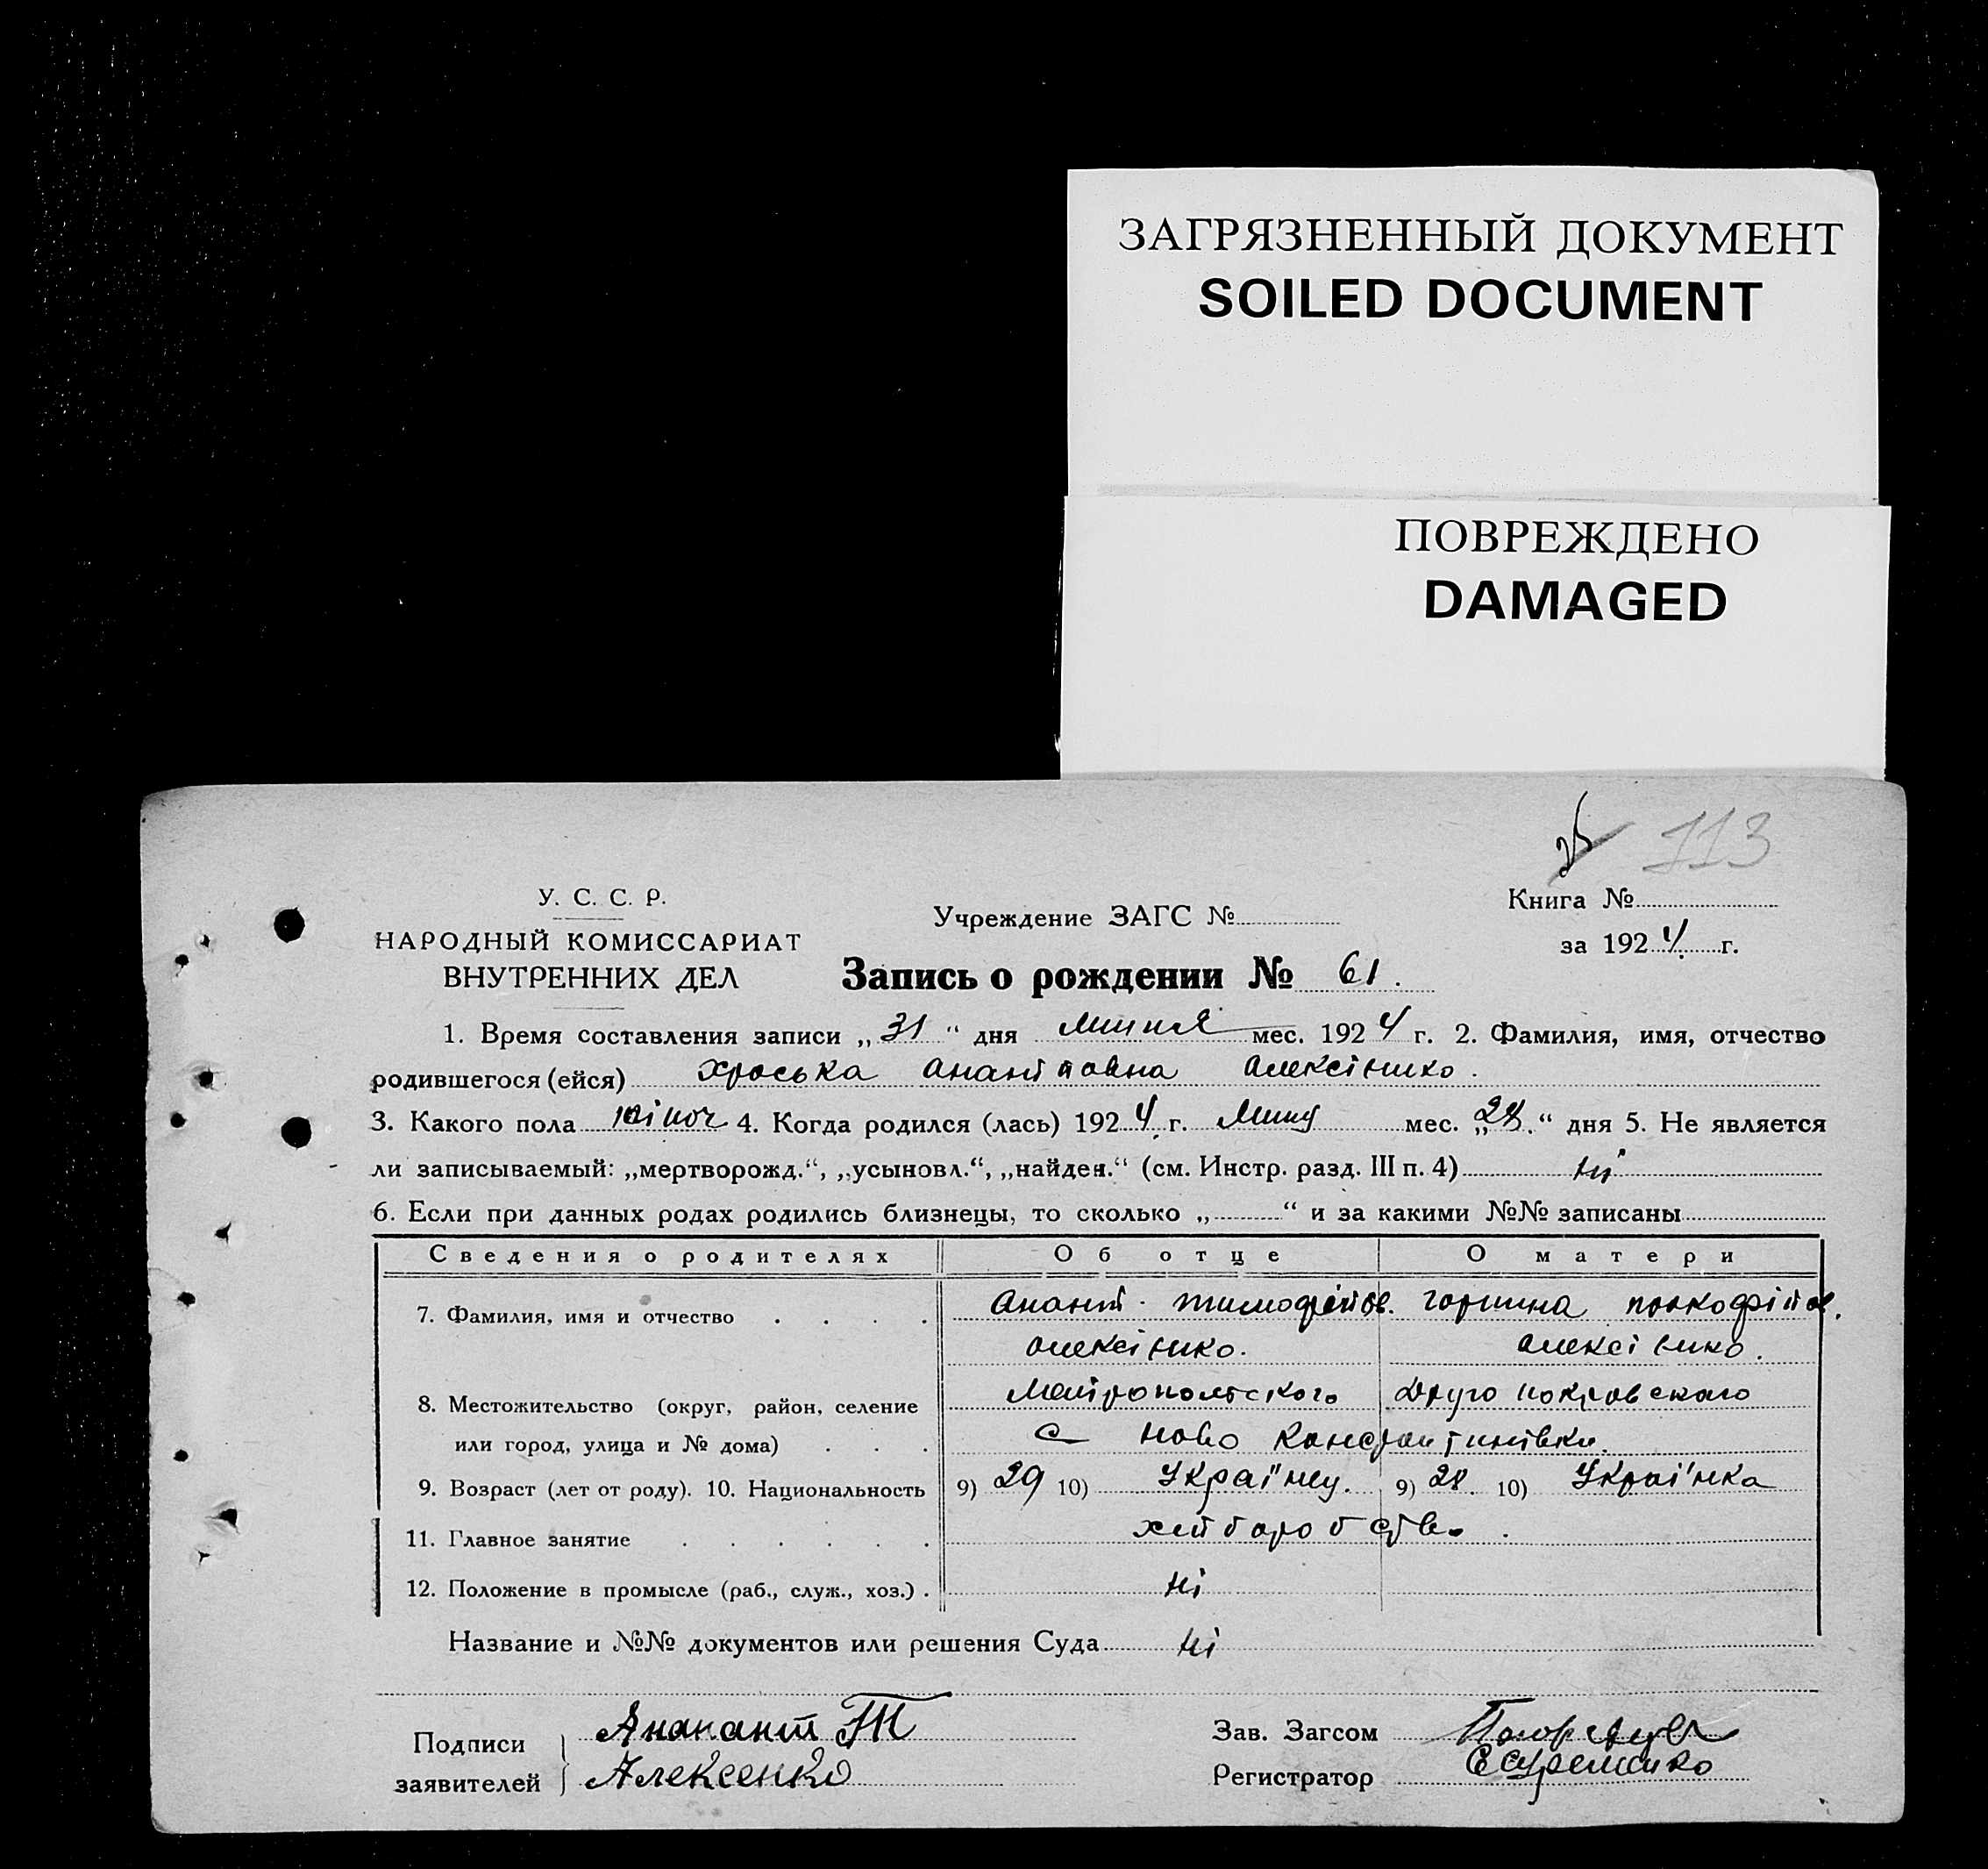 ЗАГРЯЗНЕННЫЙ ДОКУМЕНТ
SOILED DOCUMENT
ПОВРЕЖДЕНО
DAMAGED
113
У. С. С. Р.
НАРОДНЫЙ КОМИССАРИАТ
ВНУТРЕННИХ ДЕЛ
Учреждение ЗАГС №
Книга №
за 1924 г.
Запись о рождении № 61.
1. Время составления записи „31“ дня мес. 1924 г. 2. Фамилия, имя, отчество
родившегося (ейся) хроська Алексінко.
3. Какого пола жіноч 4. Когда родился (лась) 1924 г. мес. „28.“ дня 5. Не является
ли записываемый: „мертворожд.“, „усыновл.“, „найден.“ (см. Инстр. разд. III п. 4) ні
6. Если при данных родах родились близнецы, то сколько „ “ и за какими №№ записаны
Сведения о родителях Об отце О матери
7. Фамилия, имя и отчество Анант. тимофейов. горпина прокофійов.
алексінко. алексінко.
8. Местожительство (округ, район, селение Меліропольского Друго покровского
или город, улица и № дома) с ново Константинівки.
9. Возраст (лет от роду). 10. Национальность 9) 29 10) Украінец. 9) 28. 10) Украі'нка
11. Главное занятие хліборобство.
12. Положение в промысле (раб., служ., хоз.) ні
Название и №№ документов или решения Суда ні
Подписи заявителей Ананант Т
Алексенко
Зав. Загсом
Регистратор